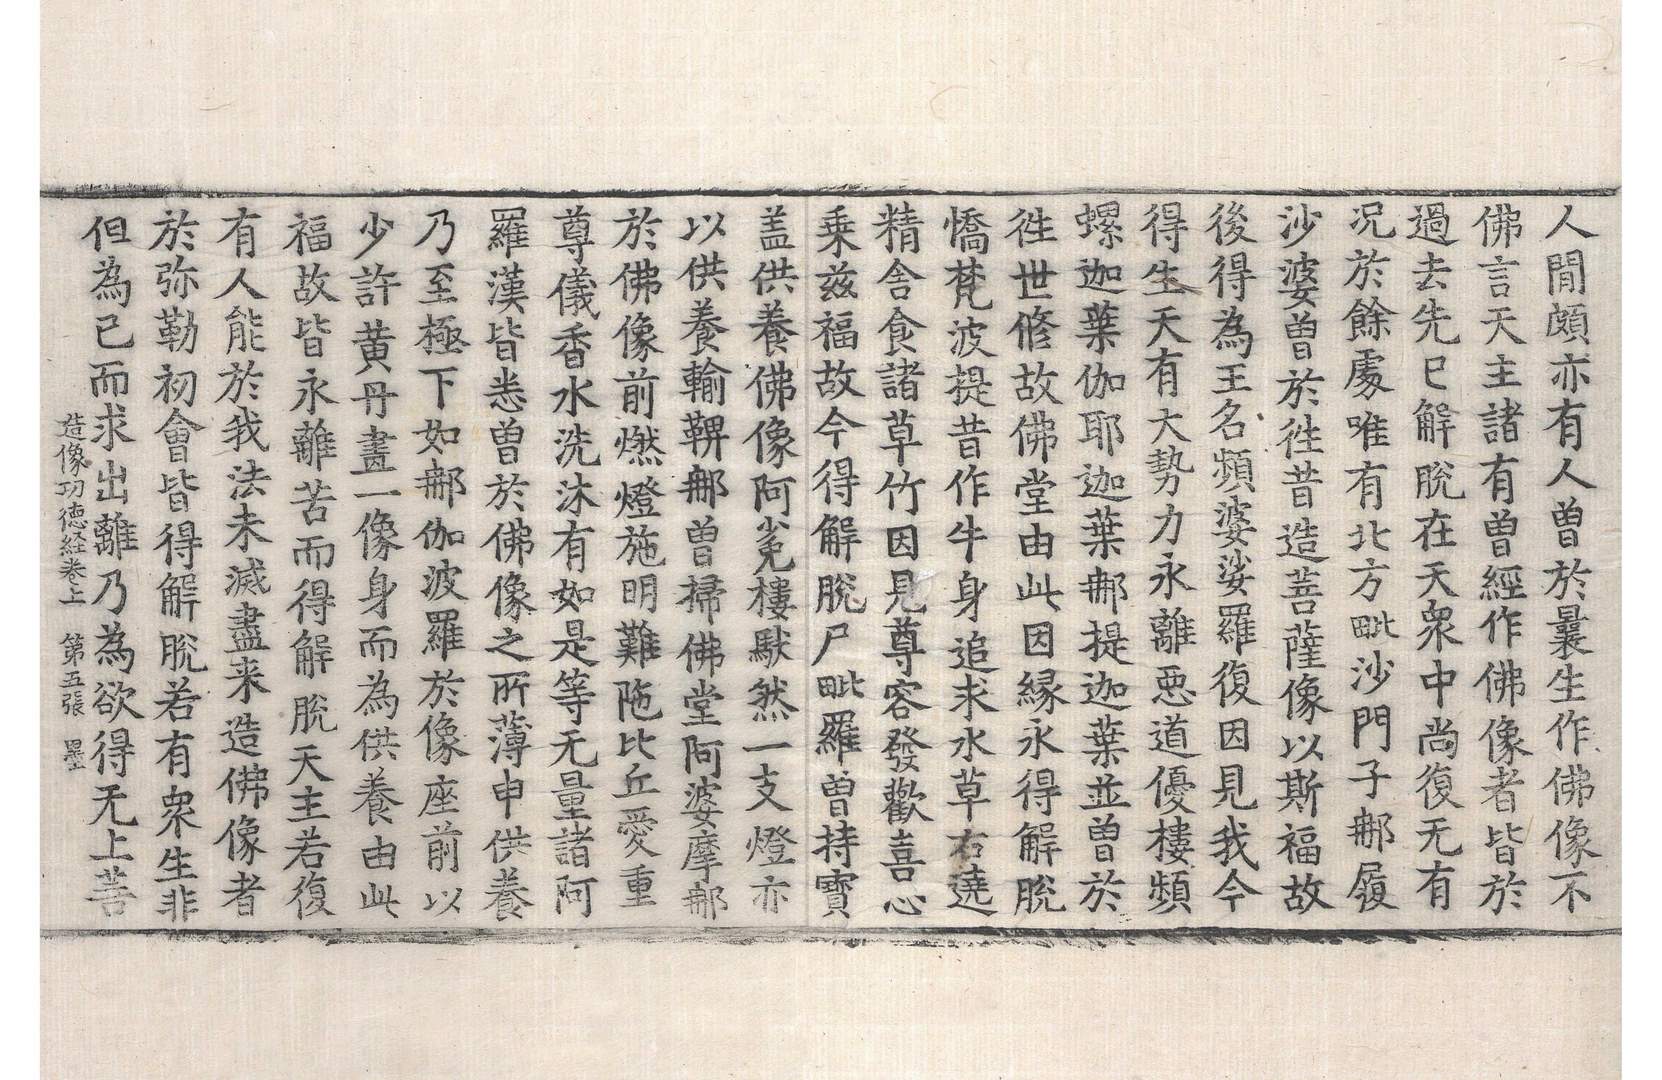 人間頗亦有人曾於曩生作佛像不
佛言天主諸有曾經作佛像者皆於
過去先已解脫在天衆中尚復无有
况於餘處唯有北方毗沙門子那履
沙婆曽於徃昔造菩薩像以斯福故
後得為王名頻婆娑羅復因見我今
得生天有大勢力永離惡道優樓頻
螺迦葉伽耶迦葉那提迦葉並曽於
徃世修故佛堂由此因緣永得解脫
憍梵波提昔作牛身追求水草右遶
精舍食諸草竹因見尊容發歡喜心
乗兹福故今得解脫尸毗羅曽持寳
盖供養佛像阿㝹樓䭾然一支燈亦
以供養輸鞞那曽掃佛堂阿婆摩那
於佛像前燃燈施明難陁比丘愛重
尊儀香水洗沐有如是等无量諸阿
羅漢皆悉曽於佛像之所薄申供養
乃至極下如那伽波羅於像座前以
少許黄丹畫一像身而為供養由此
福故皆永離苦而得解脫天主若復
有人能於我法未滅盡来造佛像者
於弥勒初會皆得解脫若有衆生非
但為已而求出離乃為欲得无上菩
造像功德経卷上　第五張　墨